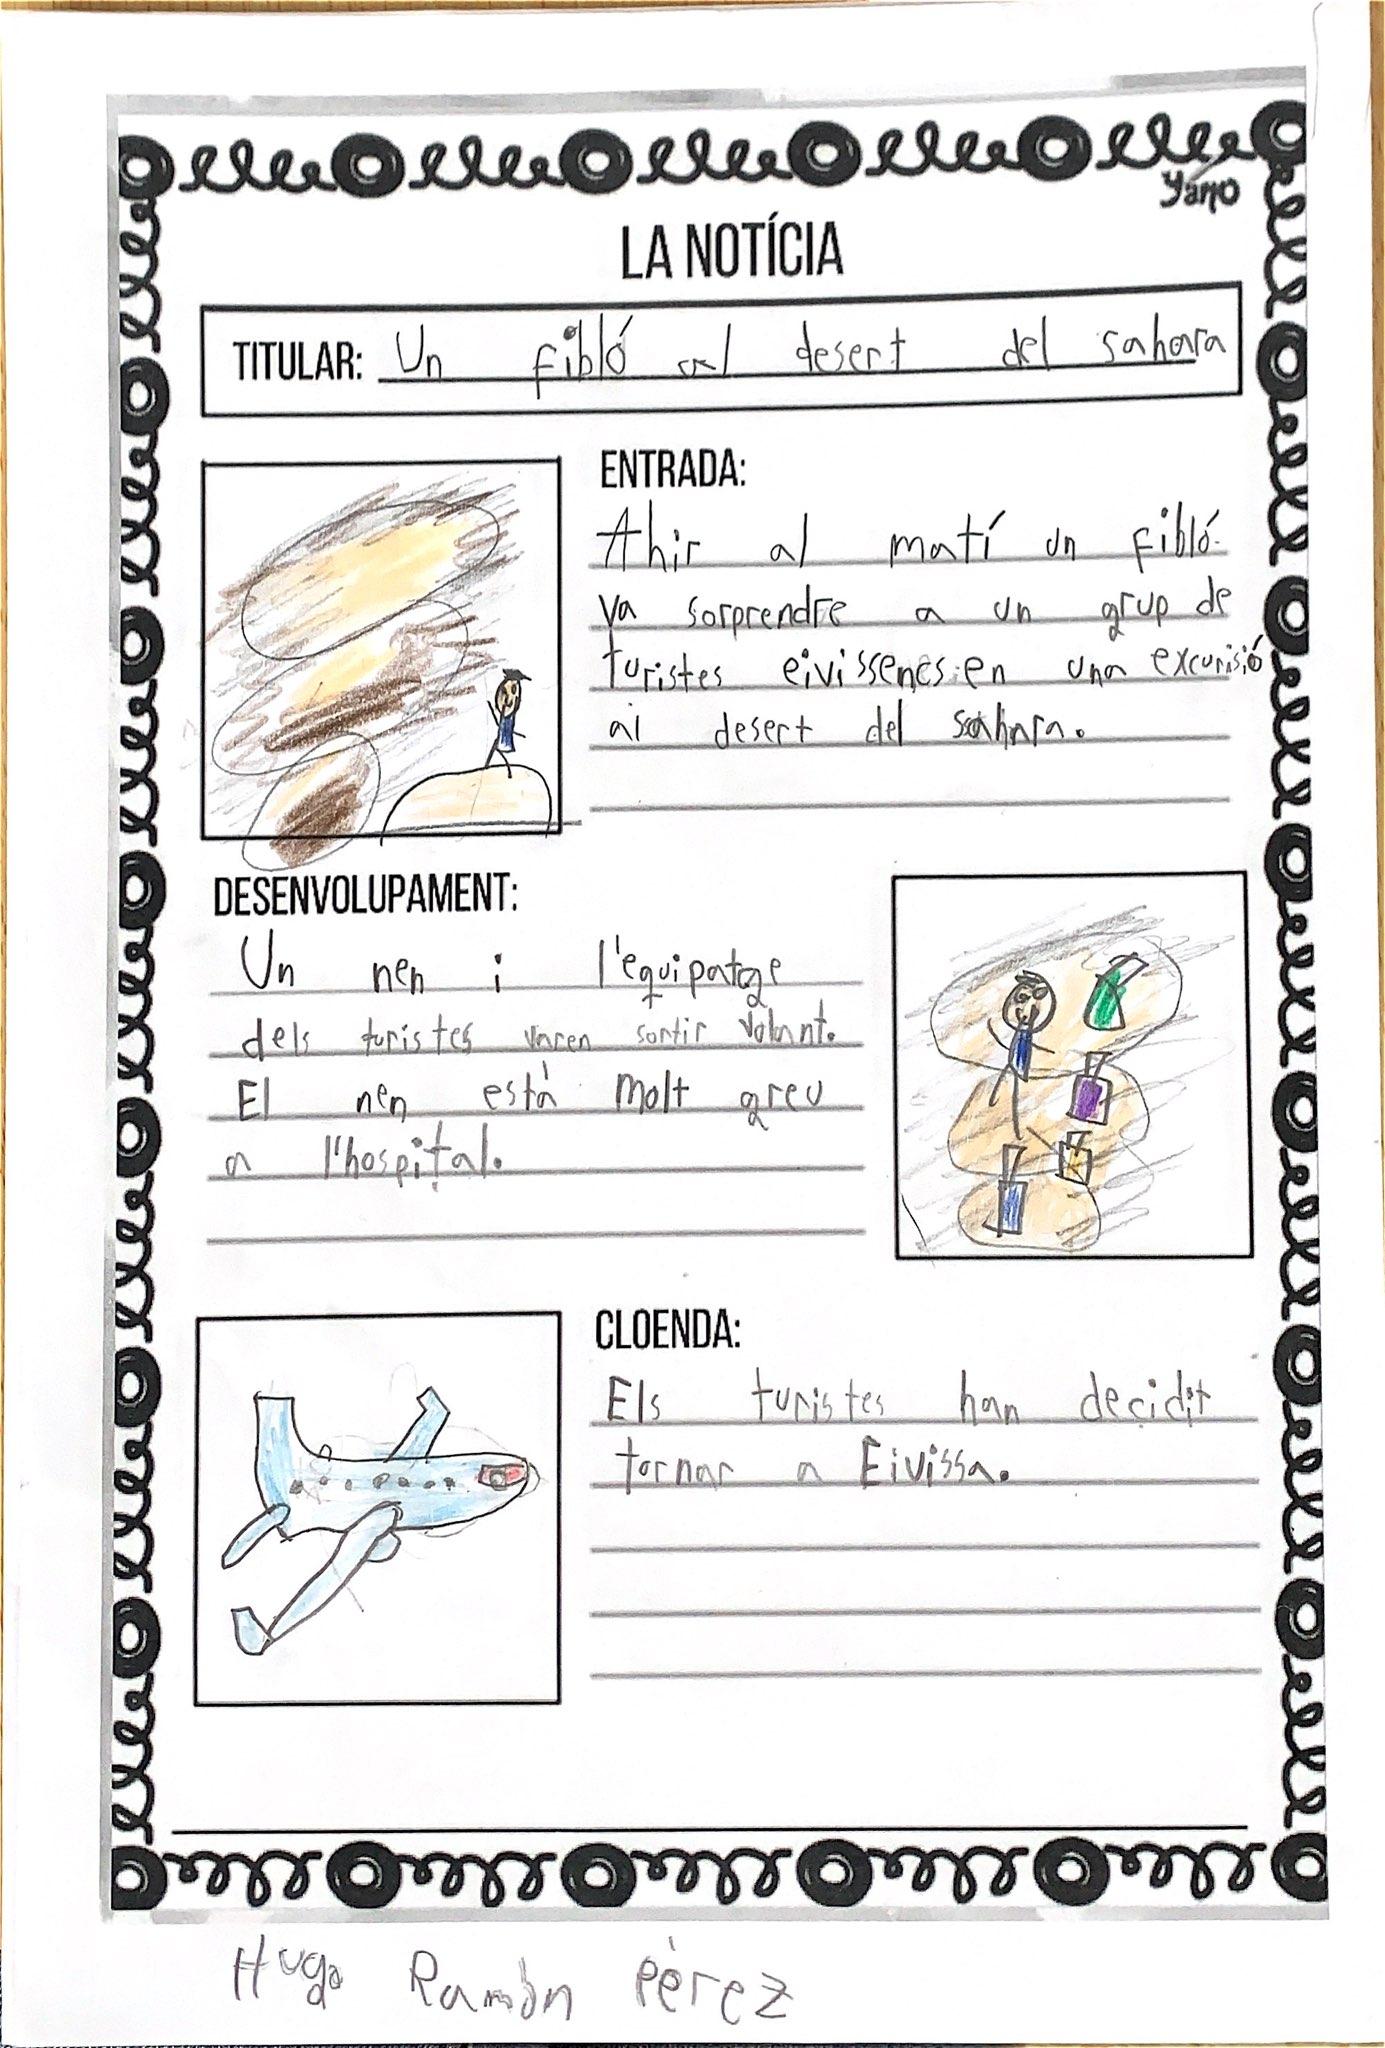 Yamo
LA NOTÍCIA
TITULAR: Un fibló al desert del sahara
ENTRADA:
Ahir al matí un fibló
va sorprendre a un grup de
turistes eivissencs en una excurisió
al desert del sahara.
DESENVOLUPAMENT:
Un nen i l'equipatge
dels turistes varen sortir volant.
El nen està molt greu
a l'hospital.
CLOENDA:
Els turistes han decidit
tornar a Eivissa.
Hugo Ramón Pérez